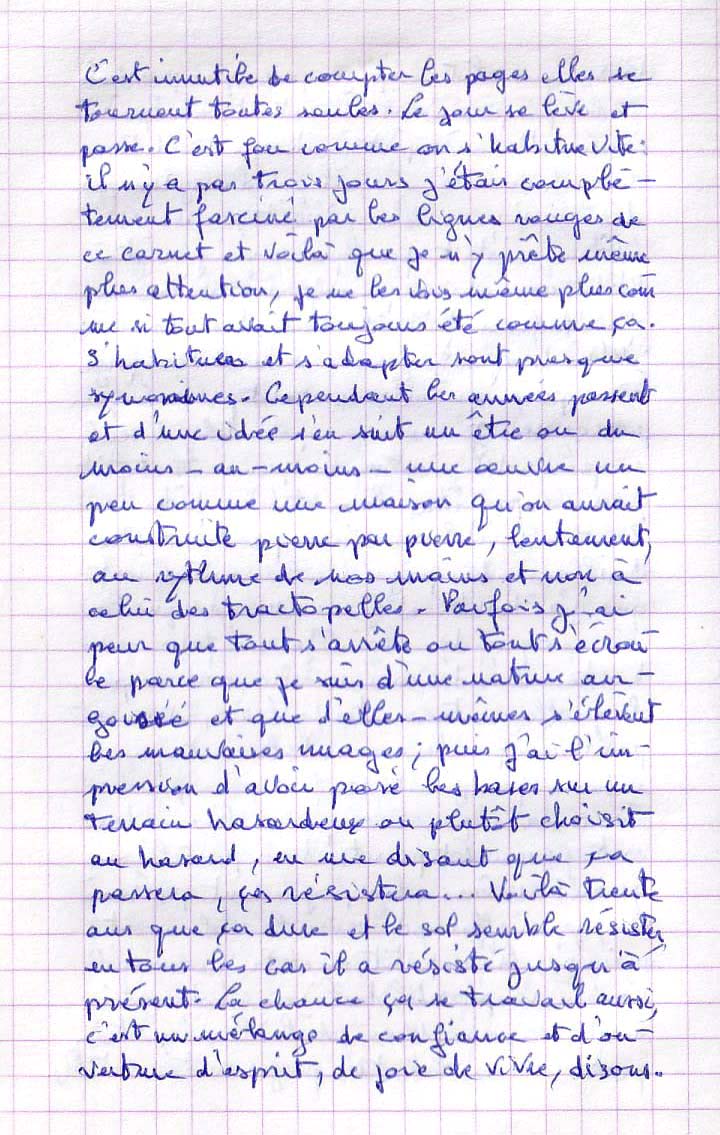 C'est inutile de compter les pages elles se
tournent toutes seules. Le jour se lève et
passe. C'est fou comme on s'habitue vite :
il n'y a pas trois jours j'étais complè-
tement fasciné par les lignes rouges de
ce carnet et voilà que je n'y prête même
plus attention, je ne les vois même plus com
me si tout avait toujours été comme ça.
S'habituer et s'adapter sont presque
synonimes. Cependant les années passent
et d'une idée s'en suit un être ou du
moins - au-moins - une œuvre un
peu comme une maison qu'on aurait
construite pierre par pierre, lentement,
au rythme de nos mains et non à
celui des tractopelles. Parfois j'ai
peur que tout s'arrête ou tout s'écrou
le parce que je suis d'une nature an-
goissé et que d'elles-mêmes s'élèvent
les mauvaises nuages ; puis j'ai l'im-
pression d'avoir posé les bases sur un
terrain hasardeux ou plutôt choisit
au hasard, en me disant que ça
passera, ça résistera... Voilà trente
ans que ça dure et le sol semble résister,
en tous les cas il a résisté jusqu'à
présent. La chance ça se travail aussi,
c'est un mélange de confiance et d'ou-
verture d'esprit, de joie de vivre, disons.